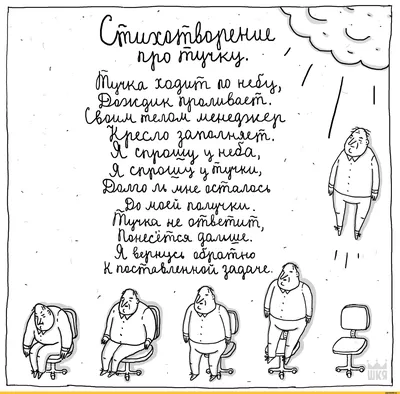 Стихотворение
про тучку.
Тучка ходит по небу,
Дождик проливает.
Своим телом менеджер
Кресло заполняет.
Я спрошу у неба,
Я спрошу у тучки,
Долго ль мне осталось
До моей получки.
Тучка не ответит,
Понесётся дальше.
Я вернусь обратно
К поставленной задаче.
ШКЯ